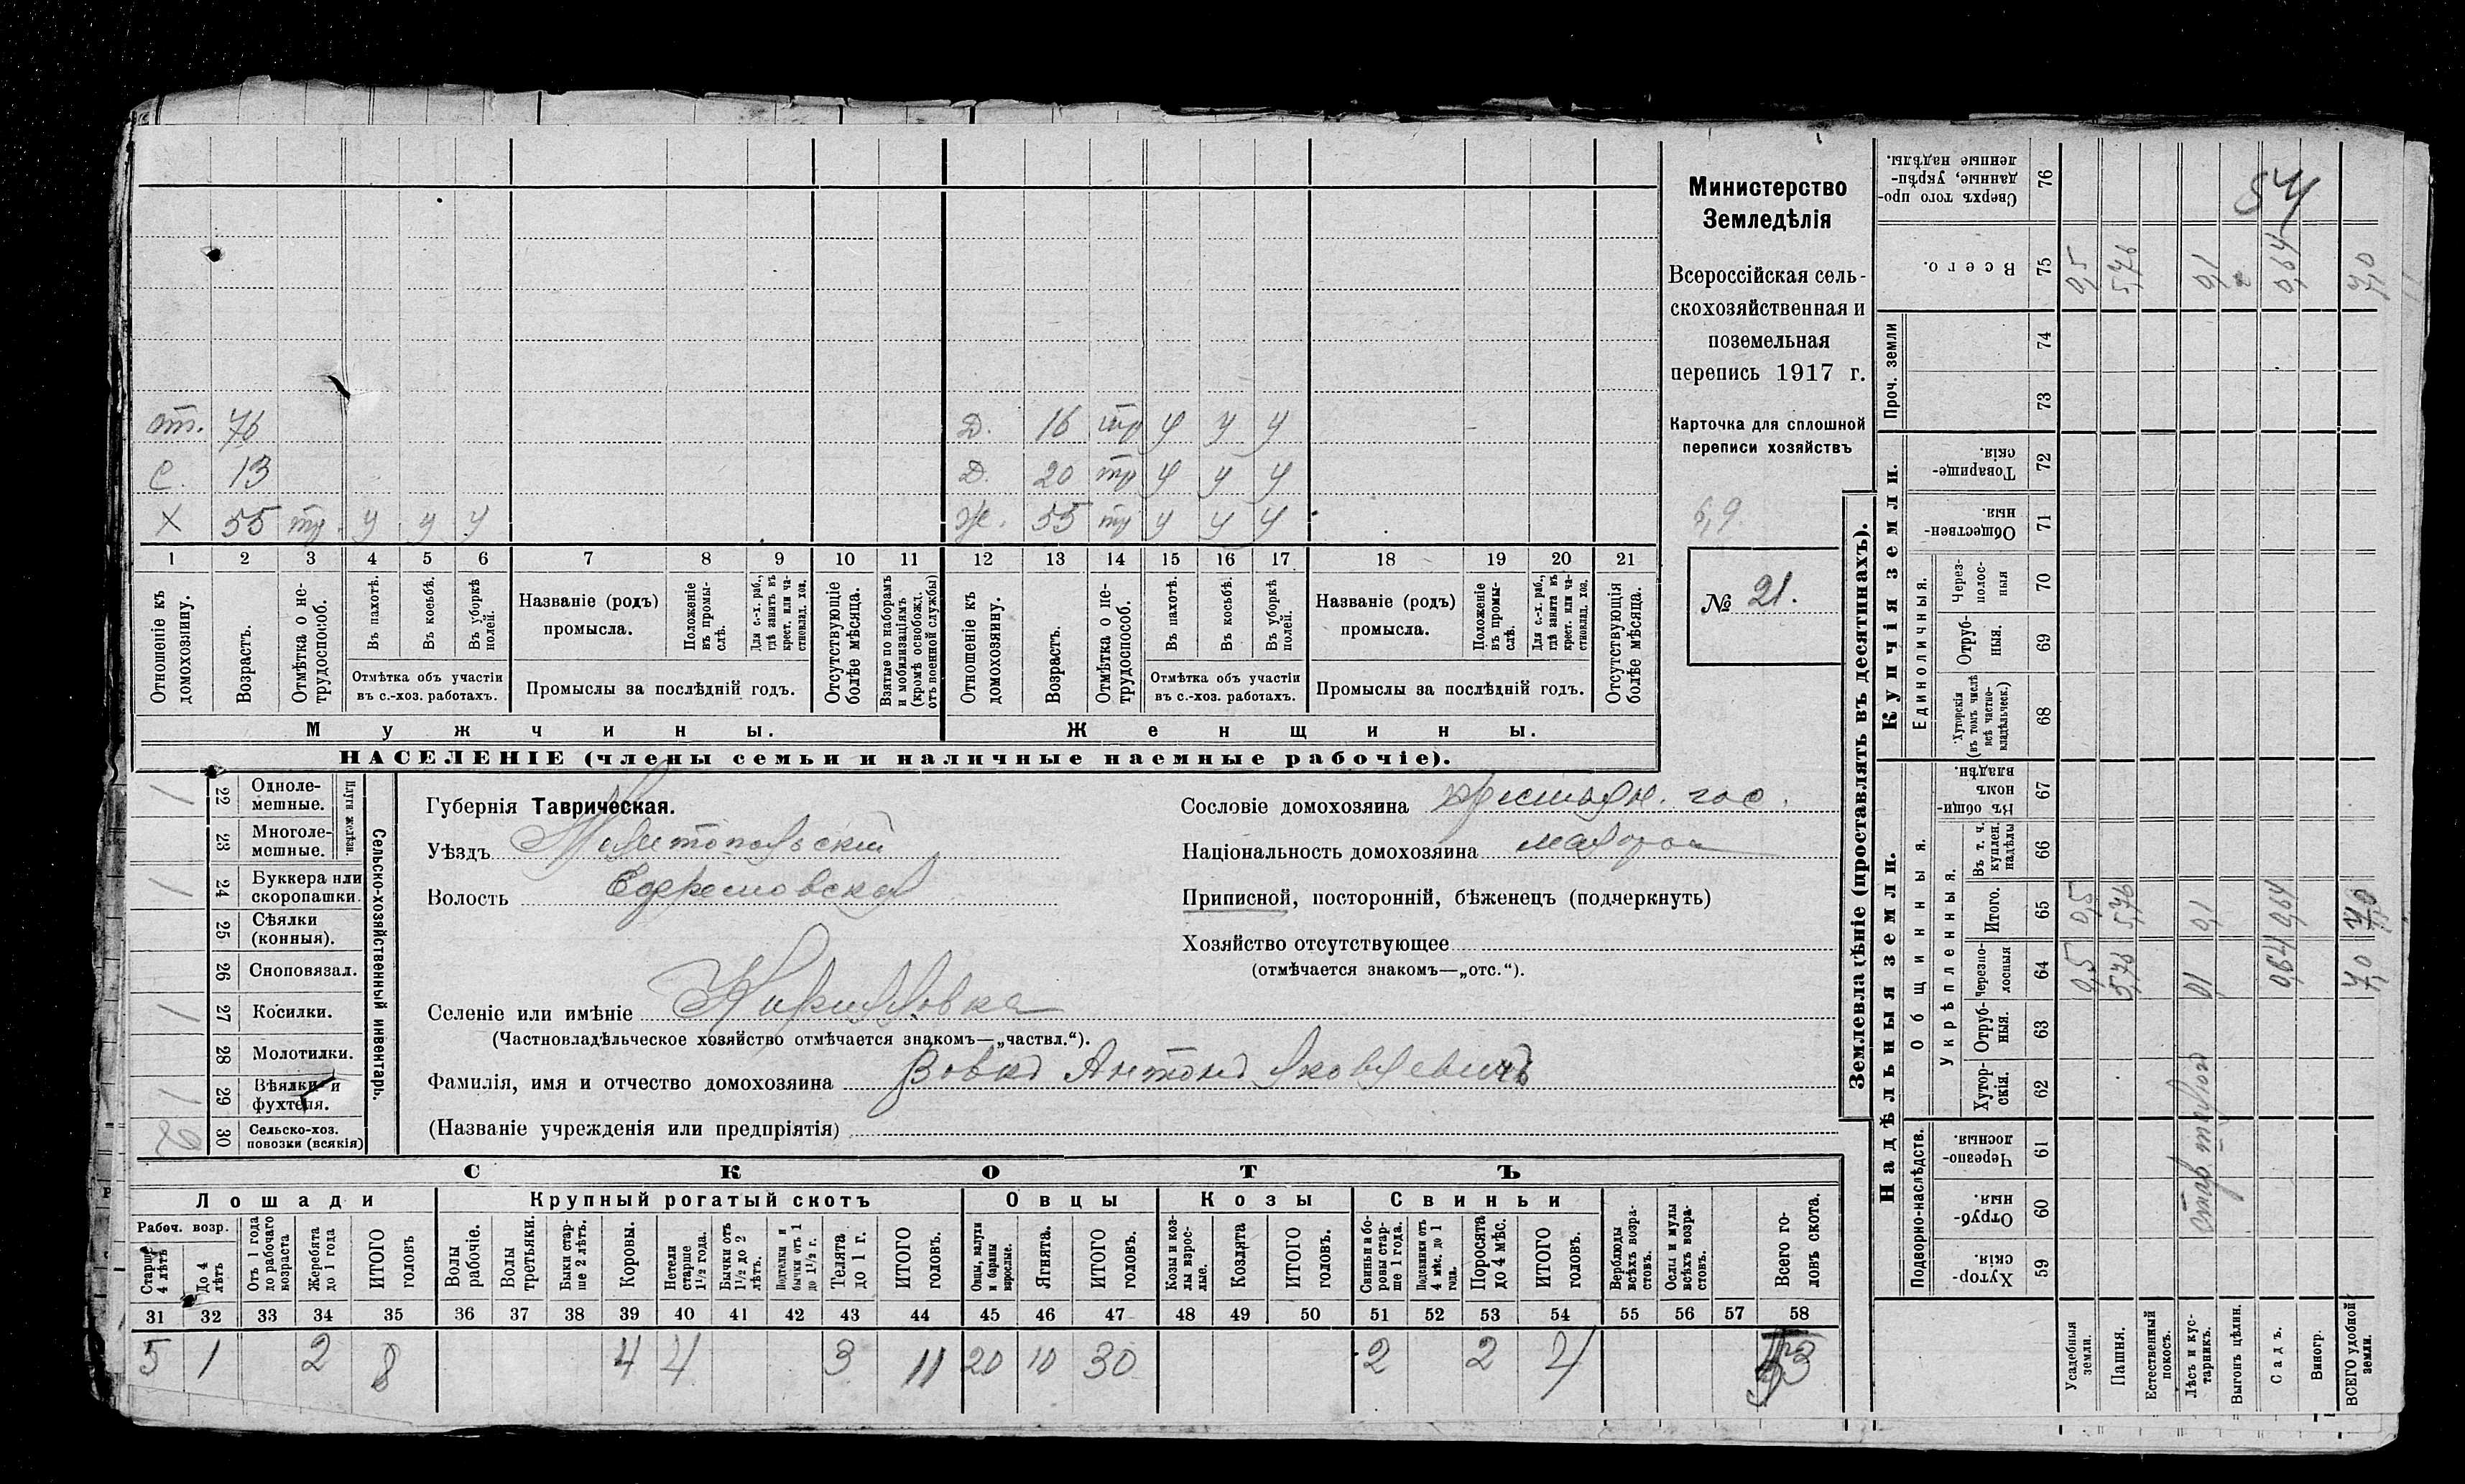 от. 76 Д. 16 тр у у у
С. 13 Д. 20 тр у у у
Х 55 тр. у у у Ж. 55 тр у у у
1 2 3 4 5 6 7 8 9 10 11 12 13 14 15 16 17 18 19 20 21
Отношеніе къ домохозяину.
Возрастъ.
Отмѣтка о не-трудоспособ.
Въ пахотѣ.
Въ косьбѣ.
Въ уборкѣ полей.
Отмѣтка объ участіи
въ с.-хоз. работахъ.
Названіе (родъ)
промысла.
Положеніе въ промы-слѣ.
Для с.-х. раб., гдѣ занятъ въ крест. или ча-стновлад. хоз.
Промыслы за послѣдній годъ.
Отсутствующіе болѣе мѣсяца.
Взятые по наборамъ и мобилизаціямъ (кромѣ освобожд. отъ военной службы)
Отношеніе къ домохозяину.
Возрастъ.
Отмѣтка о не-трудоспособ.
Въ пахотѣ.
Въ косьбѣ.
Въ уборкѣ полей.
Отмѣтка объ участіи
въ с.-хоз. работахъ.
Названіе (родъ)
промысла.
Положеніе въ промы-слѣ.
Для с.-х. раб., гдѣ занята въ крест. или ча-стновлад. хоз.
Промыслы за послѣдній годъ.
Отсутствующія болѣе мѣсяца.
Мужчины. Женщины.
НАСЕЛЕНІЕ (члены семьи и наличные наемные рабочіе).
Министерство
Земледѣлія
Всероссійская сель-
скохозяйственная и
поземельная
перепись 1917 г.
Карточка для сплошной
переписи хозяйствъ
6,9
№ 21.
Сельско-хозяйственный инвентарь.
Плуги желѣзн.
1 22 Одноле-мешные.
23 Многоле-мешные.
1 24 Буккера или скоропашки.
25 Сѣялки (конныя).
26 Сноповязал.
1 27 Косилки.
28 Молотилки.
1 29 Вѣялки и фухтеля.
2 30 Сельско-хоз. повозки (всякія)
Губернія Таврическая.
Уѣздъ Мелитопольскій
Волость Ефремовская
Селеніе или имѣніе Кирилловка
(Частновладѣльческое хозяйство отмѣчается знакомъ—„частвл.“).
Фамилія, имя и отчество домохозяина Вовкъ Антонъ Яковлевичъ
(Названіе учрежденія или предпріятія)
Сословіе домохозяина крестьян. гос.
Національность домохозяина малорос
Приписной, посторонній, бѣженецъ (подчеркнуть)
Хозяйство отсутствующее
(отмѣчается знакомъ—„отс.“).
СКОТЪ
Лошади Крупный рогатый скотъ Овцы Козы Свиньи
Рабоч. возр.
Старше 4 лѣтъ
До 4 лѣтъ
Отъ 1 года до рабочаго возраста
Жеребята до 1 года
ИТОГО головъ
Волы рабочіе.
Волы третьяки.
Быки стар-ше 2 лѣтъ.
Коровы.
Нетели старше 1½ года.
Бычки отъ 1½ до 2 лѣтъ.
Подтелки и бычки отъ 1 до 1½ г.
Телята до 1 г.
ИТОГО головъ.
Овцы, валухи и бараны взрослые.
Ягнята.
ИТОГО головъ.
Козы и коз-лы взрос-лые.
Козлята
ИТОГО головъ.
Свиньи и бо-ровы стар-ше 1 года.
Подсвинки отъ 4 мѣс. до 1 года.
Поросята до 4 мѣс.
ИТОГО головъ.
Верблюды всѣхъ возра-стовъ.
Ослы и мулы всѣхъ возра-стовъ.
Всего го-ловъ скота.
31 32 33 34 35 36 37 38 39 40 41 42 43 44 45 46 47 48 49 50 51 52 53 54 55 56 57 58
5 1 2 8 4 4 3 11 20 10 30 2 2 4 53
Землевладѣніе (проставлять въ десятинахъ).
54
Сверхъ того про-данные, укрѣп-ленные надѣлы. 76
Всего. 75 0,5 5,76 0,1 0,64 7,0
Проч. земли 74 73
Купчія земли.
Товарище-скія. 72
Обществен-ныя. 71
Единоличныя.
Через-полос-ныя 70
Отруб-ныя. 69
Хуторскія (въ томъ числѣ всѣ частно-владѣльческ.) 68
Надѣльныя земли.
Общинныя.
Въ общи-номъ владѣн. 67
Укрѣпленныя.
Въ т. ч. куплен. надѣлы 66
Итого. 65 0,5 5,76 0,1 0,64 7,0
Черезпо-лосныя 64 0,5 5,76 0,1 0,64 7,0
Отруб-ныя. 63
Хутор-скія. 62
Подворно-наслѣдств.
Черезпо-лосныя. 61
Отруб-ныя. 60
Хутор-скія. 59
Усадебныя земли.
Пашня.
Естественный покосъ.
Лѣсъ и кус-тарникъ.
Выгонъ цѣлин.
Садъ.
Виногр.
ВСЕГО удобной земли.